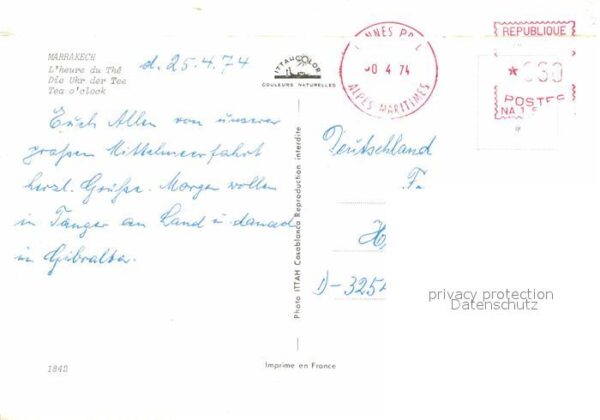 MARRAKECH
L'heure du Thé
Die Uhr der Tee
Tea o'clock
d. 25.4.74
ITTAHCOLOR
COULEURS NATURELLES
Euch Allen von unserer
großen Mittelmeerfahrt
herzl. Grüße. Morgen wollen
in Tanger an Land u. danach
in Gibraltar.
NNES PA
0 4 74
ALPES MARITIMES
REPUBLIQUE
*030
POSTES
Deutschland
F.
H
D-325
privacy protection
Datenschutz
Photo ITTAH Casablanca Reproduction interdite
1840
Imprime en France